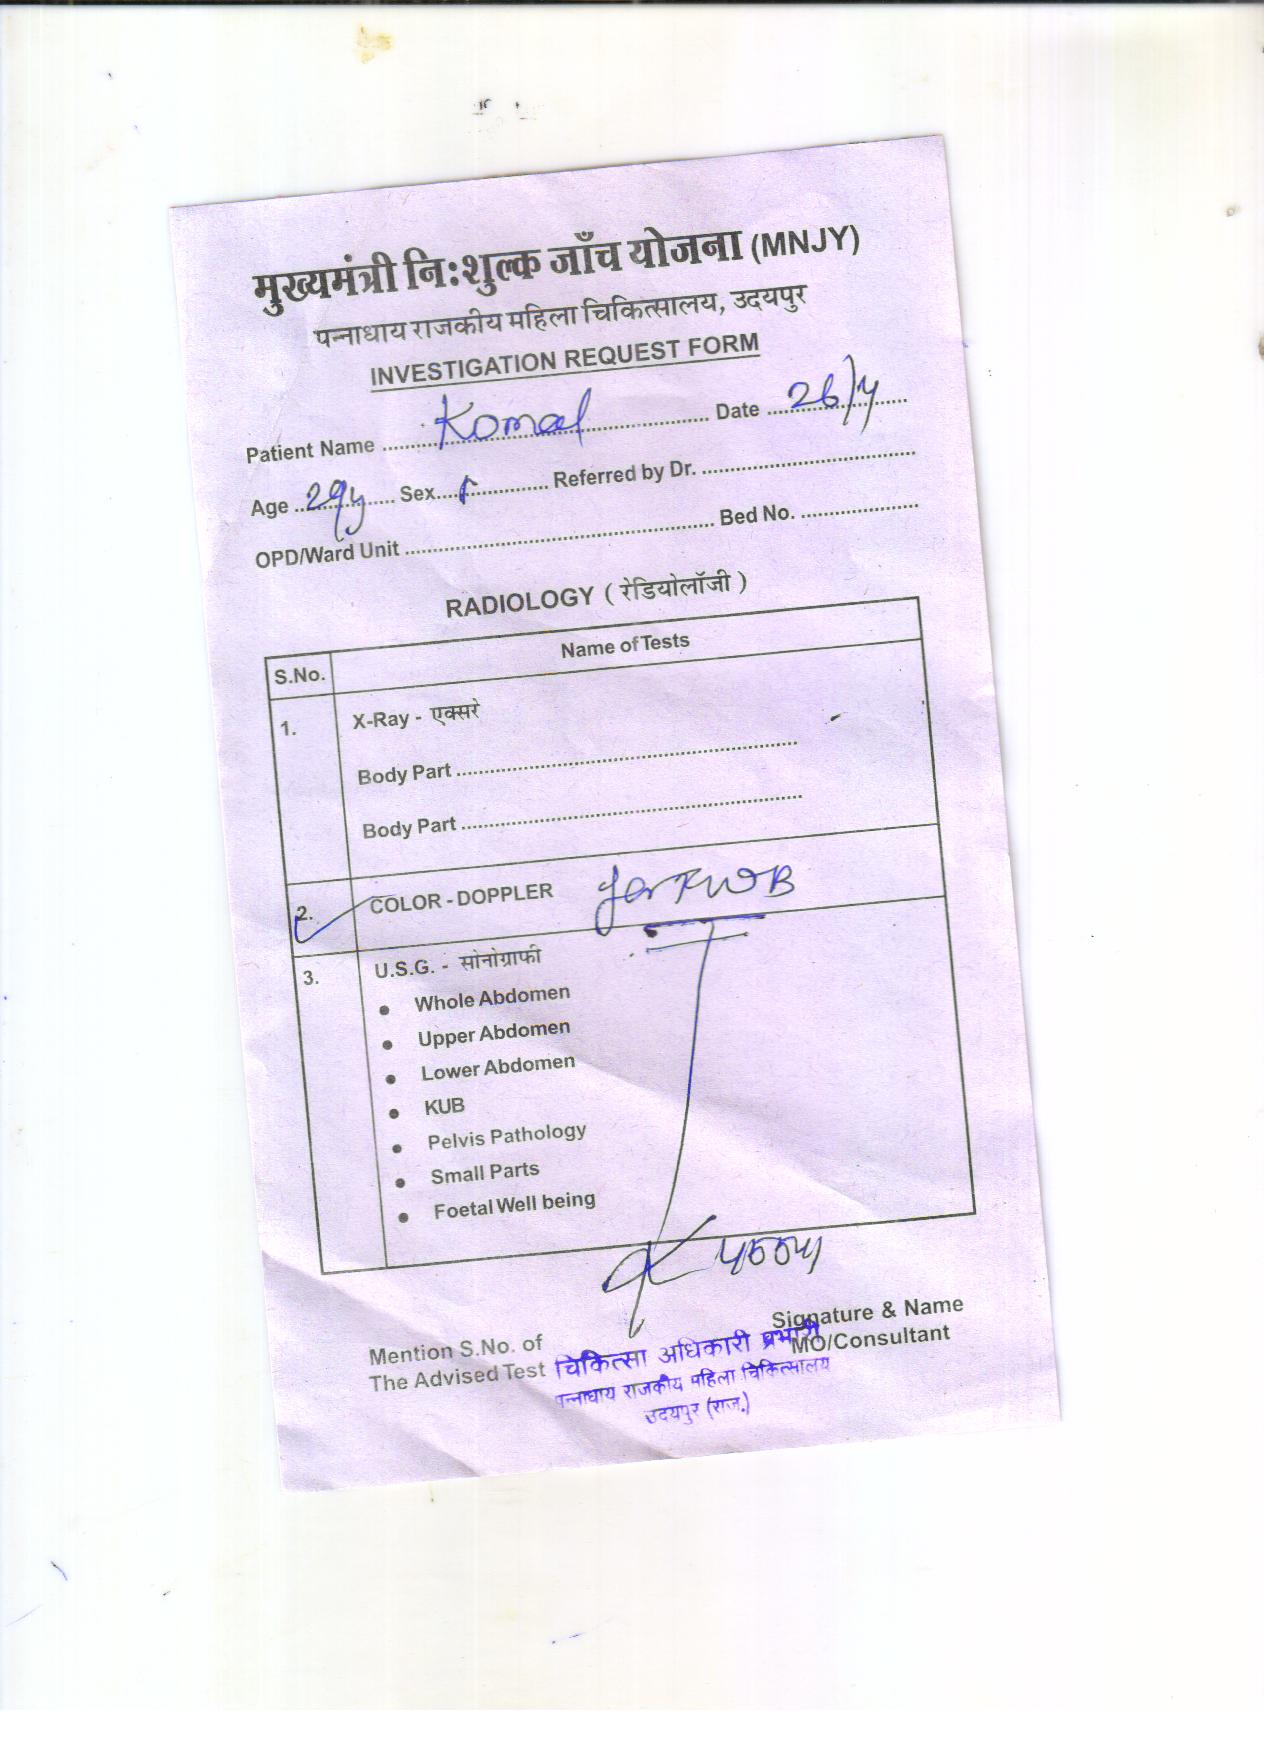 मुख्यमंत्री निःशुल्क जाँच योजना (MNJY)
पन्नाधाय राजकीय महिला चिकित्सालय, उदयपुर
INVESTIGATION REQUEST FORM
Patient Name Komal Date 26/4
Age 29y Sex F Referred by Dr.
OPD/Ward Unit Bed No.
RADIOLOGY ( रेडियोलॉजी )
S.No. Name of Tests
1. X-Ray - एक्सरे
Body Part
Body Part
2. COLOR - DOPPLER for FWB
3. U.S.G. - सोनोग्राफी
• Whole Abdomen
• Upper Abdomen
• Lower Abdomen
• KUB
• Pelvis Pathology
• Small Parts
• Foetal Well being
Signature & Name
MO/Consultant
Mention S.No. of
The Advised Test
चिकित्सा अधिकारी प्रभारी
पन्नाधाय राजकीय महिला चिकित्सालय
उदयपुर (राज.)